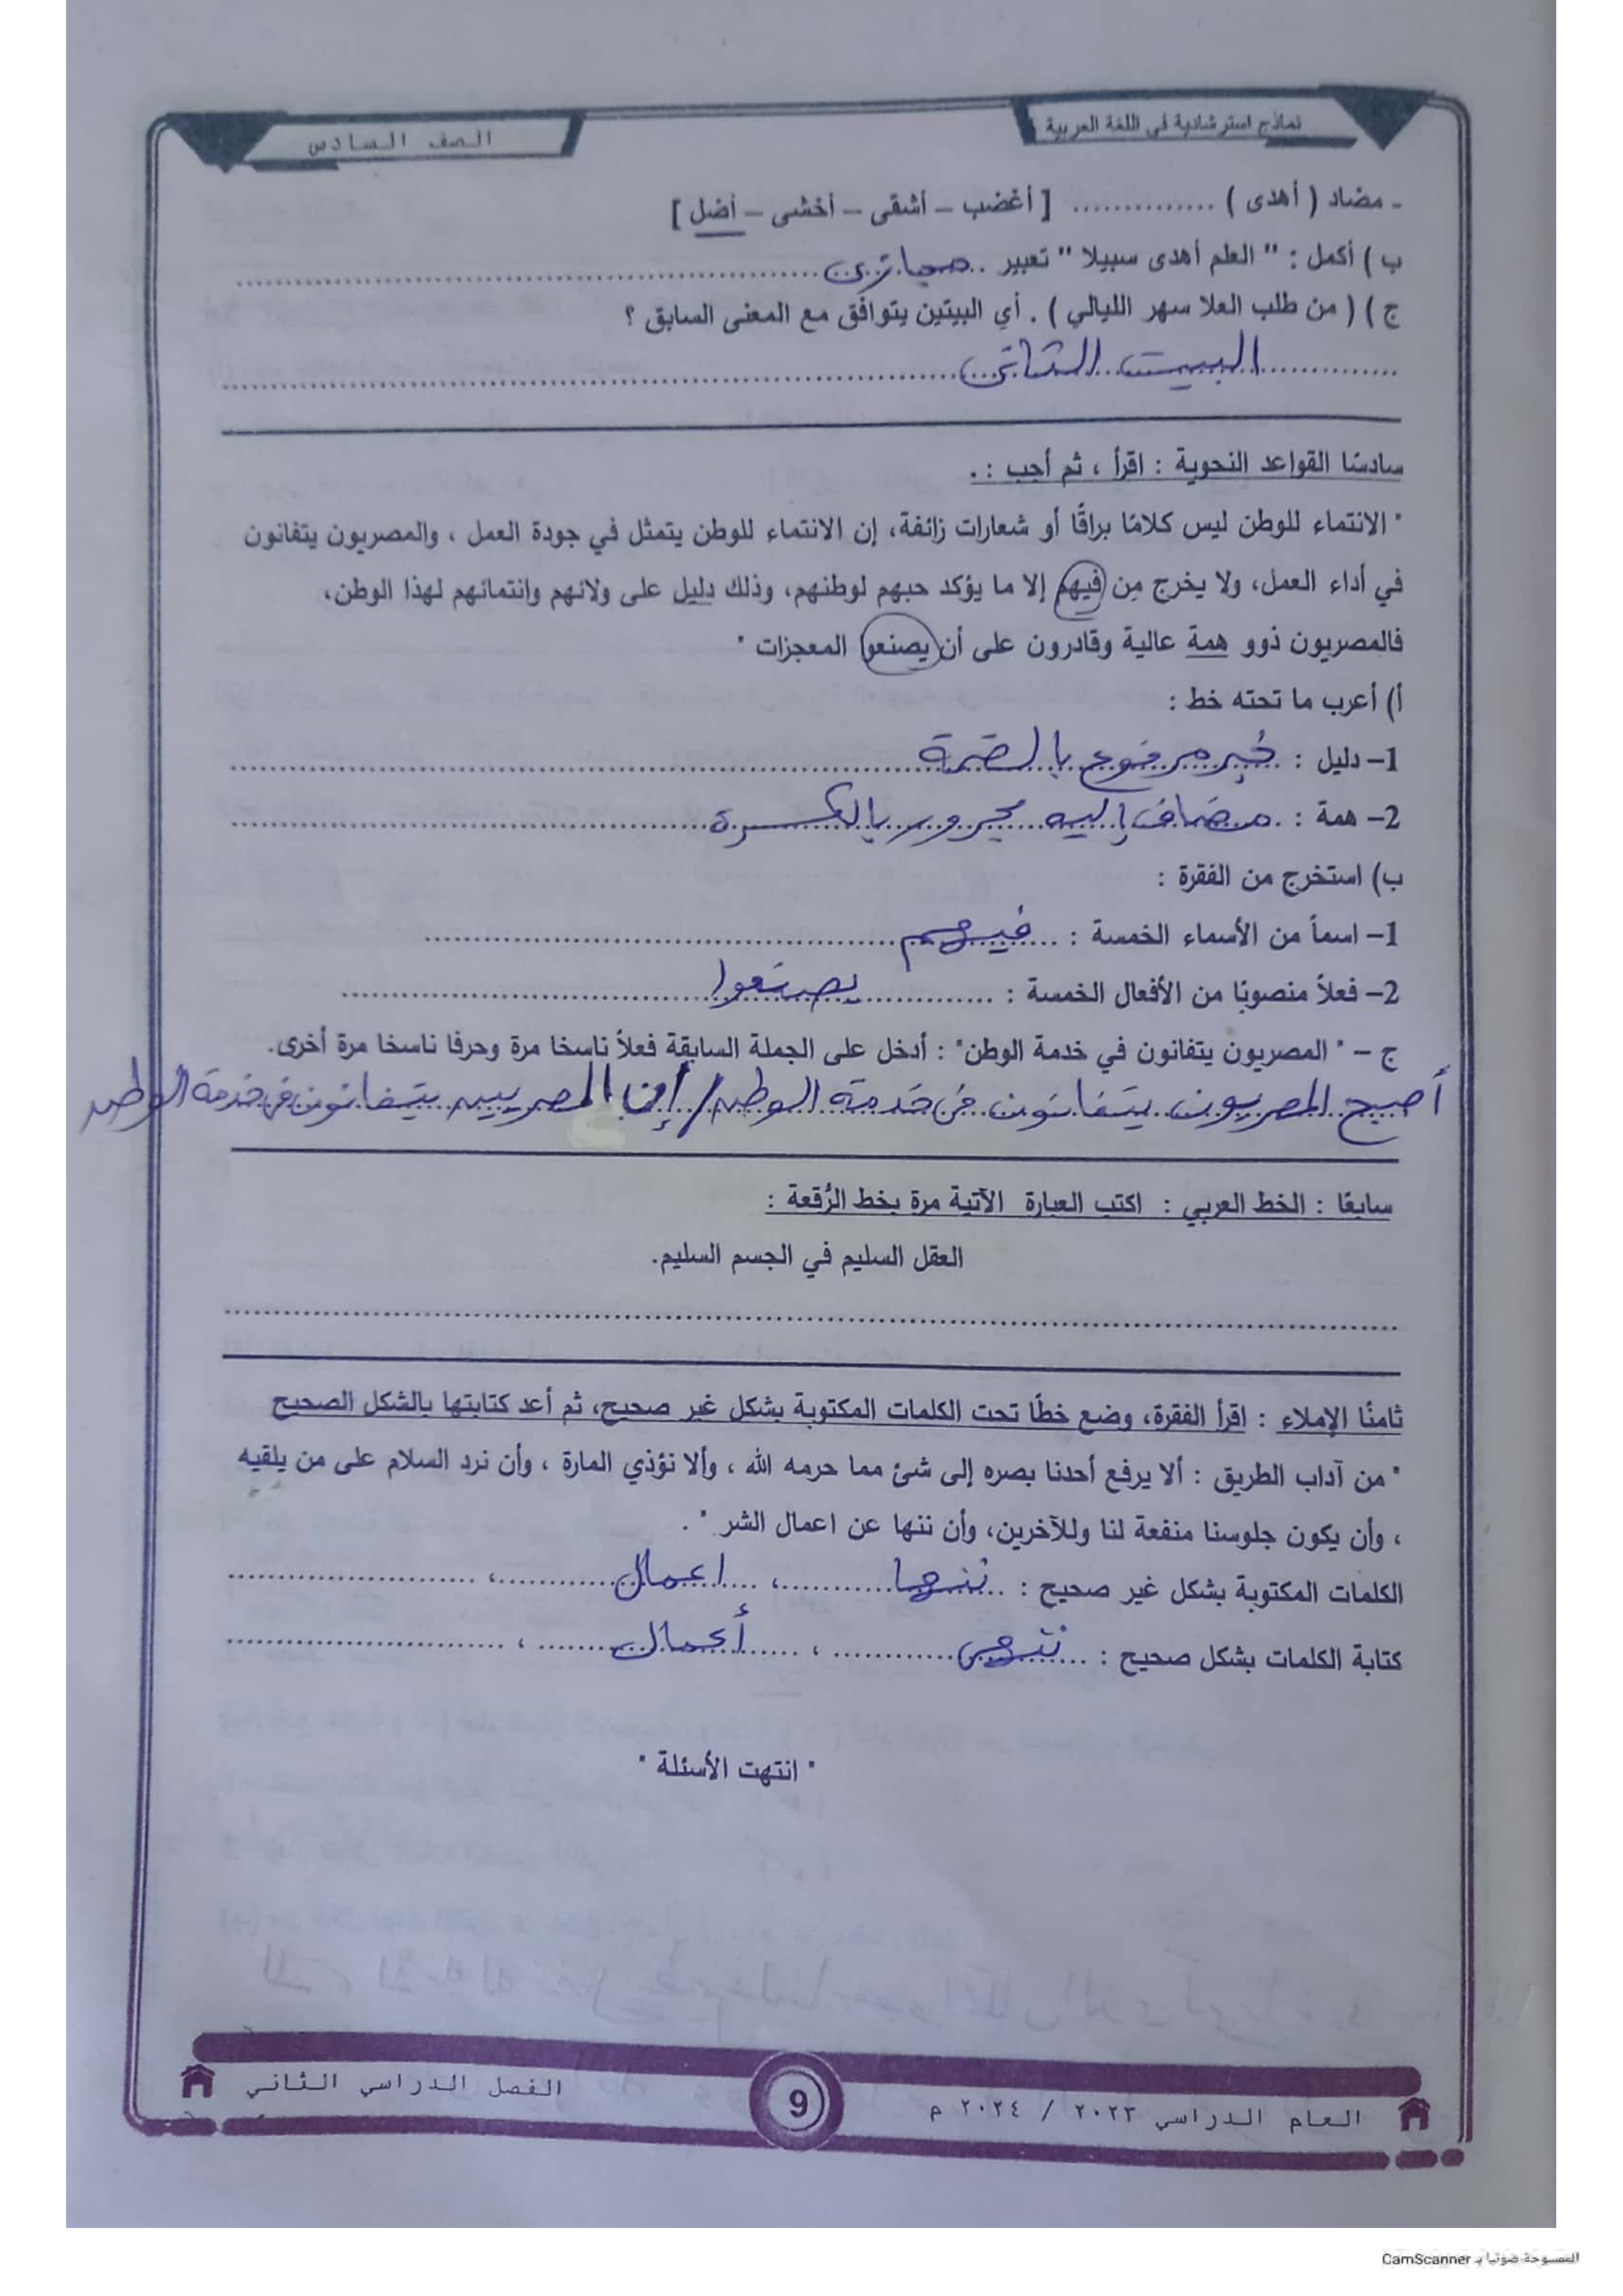 نماذج استرشادية في اللغة العربية
الصف السادس
- مضاد ( أهدى ) .............. [ أغضب – أشقى – أخشى – أضل ]
ب ) أكمل : " العلم أهدى سبيلا " تعبير ..مجازى..........
ج ) ( من طلب العلا سهر الليالي ) . أي البيتين يتوافق مع المعنى السابق ؟
البيت الثانى
سادسًا القواعد النحوية : اقرأ ، ثم أجب :.
" الانتماء للوطن ليس كلامًا براقًا أو شعارات زائفة، إن الانتماء للوطن يتمثل في جودة العمل ، والمصريون يتفانون
في أداء العمل، ولا يخرج مِن فيهم إلا ما يؤكد حبهم لوطنهم، وذلك دليل على ولائهم وانتمائهم لهذا الوطن،
فالمصريون ذوو همة عالية وقادرون على أن يصنعوا المعجزات "
أ) أعرب ما تحته خط :
1– دليل : خبر مرفوع بالضمة
2– همة : مضاف إليه مجرور بالكسرة
ب) استخرج من الفقرة :
1– اسماً من الأسماء الخمسة : فيهم
2– فعلاً منصوبًا من الأفعال الخمسة : يصنعوا
ج – " المصريون يتفانون في خدمة الوطن" : أدخل على الجملة السابقة فعلاً ناسخا مرة وحرفا ناسخا مرة أخرى.
أصبح المصريون يتفانون فى خدمة الوطن / إن المصريين يتفانون فى خدمة الوطن
سابعًا : الخط العربي : اكتب العبارة الآتية مرة بخط الرُّقعة :
العقل السليم في الجسم السليم.
ثامنًا الإملاء : اقرأ الفقرة، وضع خطًا تحت الكلمات المكتوبة بشكل غير صحيح، ثم أعد كتابتها بالشكل الصحيح
" من آداب الطريق : ألا يرفع أحدنا بصره إلى شئ مما حرمه الله ، وألا نؤذي المارة ، وأن نرد السلام على من يلقيه
، وأن يكون جلوسنا منفعة لنا وللآخرين، وأن ننها عن اعمال الشر " .
الكلمات المكتوبة بشكل غير صحيح : ننها ، اعمال ،
كتابة الكلمات بشكل صحيح : ننهى ، أعمال ،
" انتهت الأسئلة "
العام الدراسي ٢٠٢٣ / ٢٠٢٤ م
9
الفصل الدراسي الثاني
الممسوحة ضوئيا بـ CamScanner